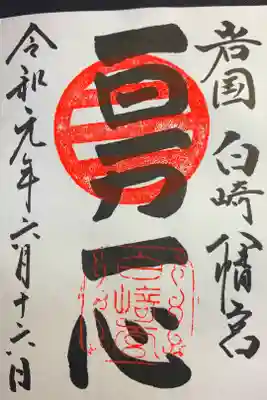 岩国 白崎八幡宮
百万一心
令和元年六月十六日